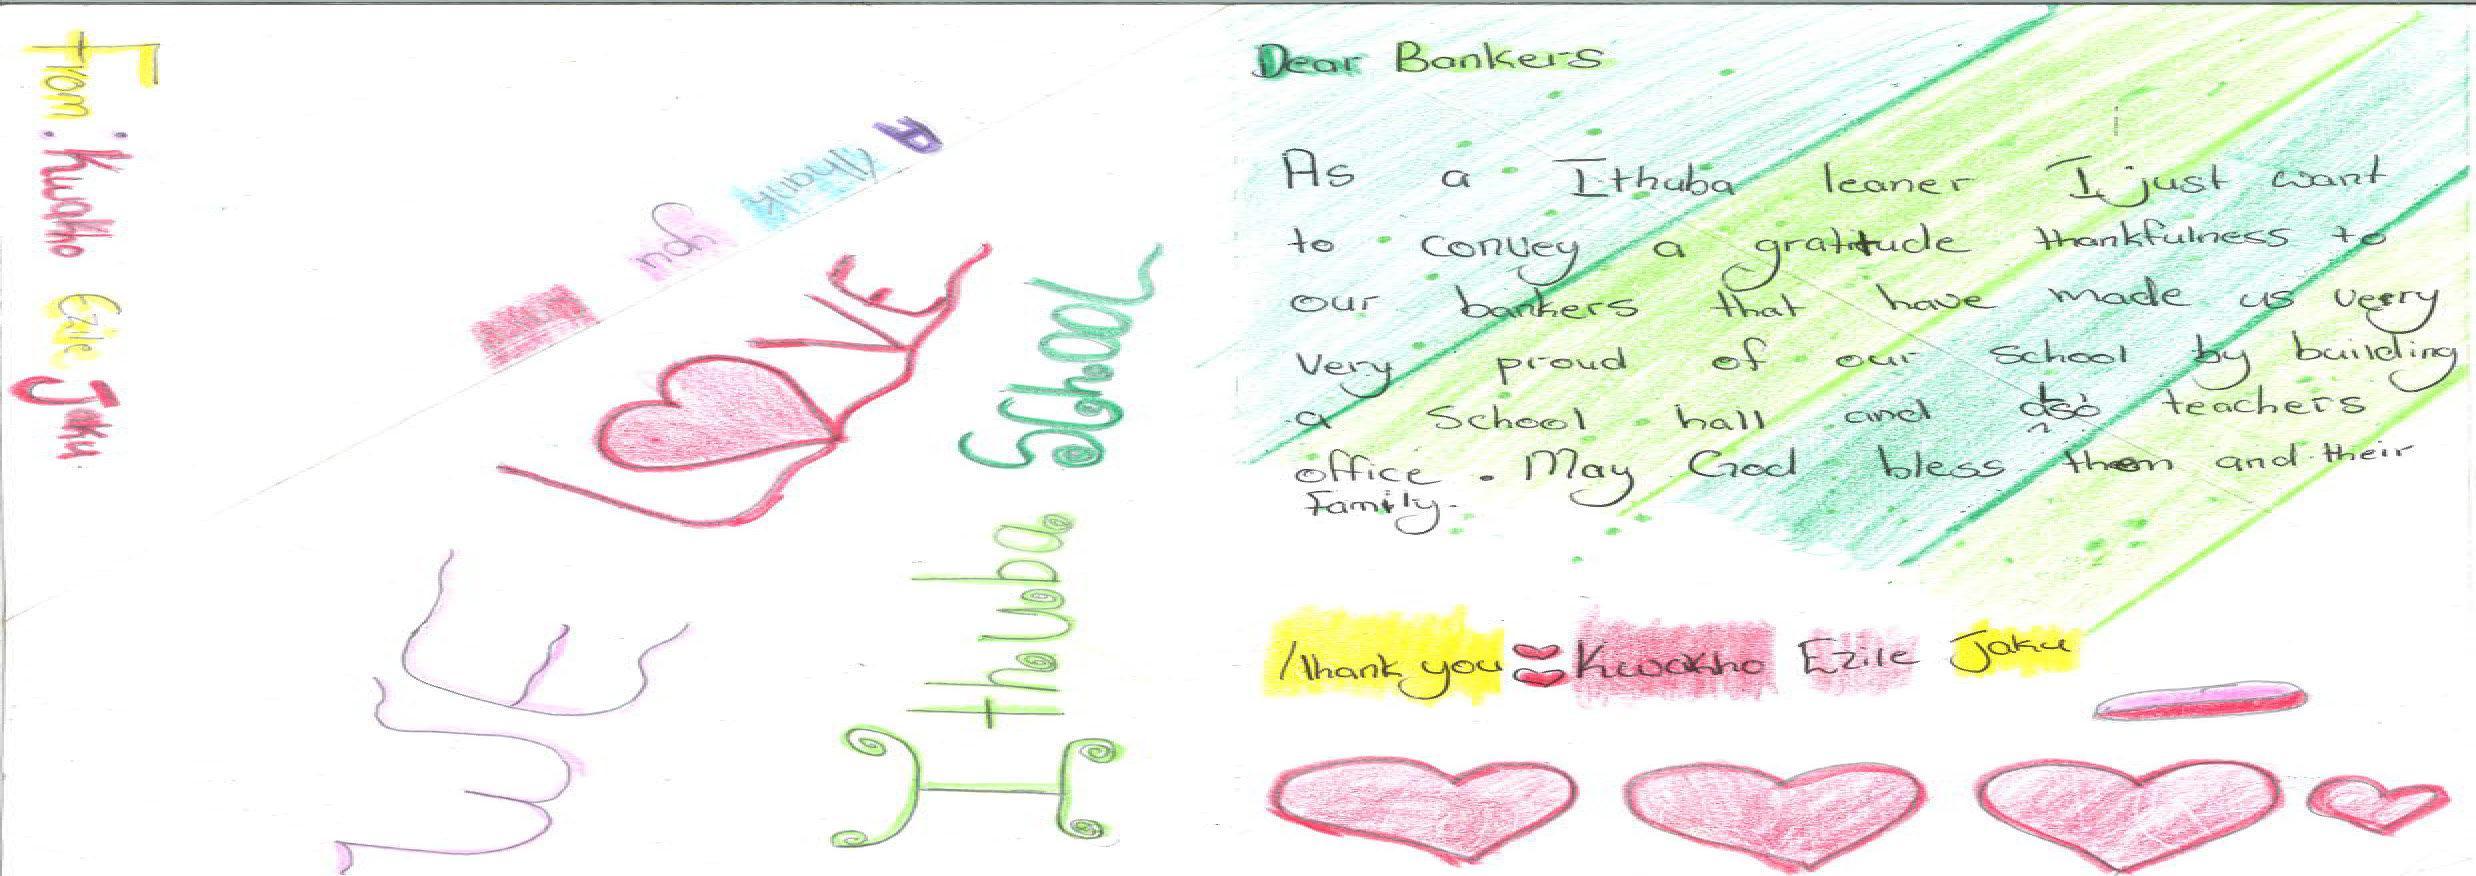 From : Kwakho Ezile Jaku
A Thank you
WE
LOVE
Ithuba School
Dear Bankers
As a Ithuba leaner I just want
to convey a gratitude thankfulness to
our bankers that have made us
very proud of our school by building
a School hall and also teachers
office . May God bless them and their
family.
Thank you Kwakho Ezile Jaku